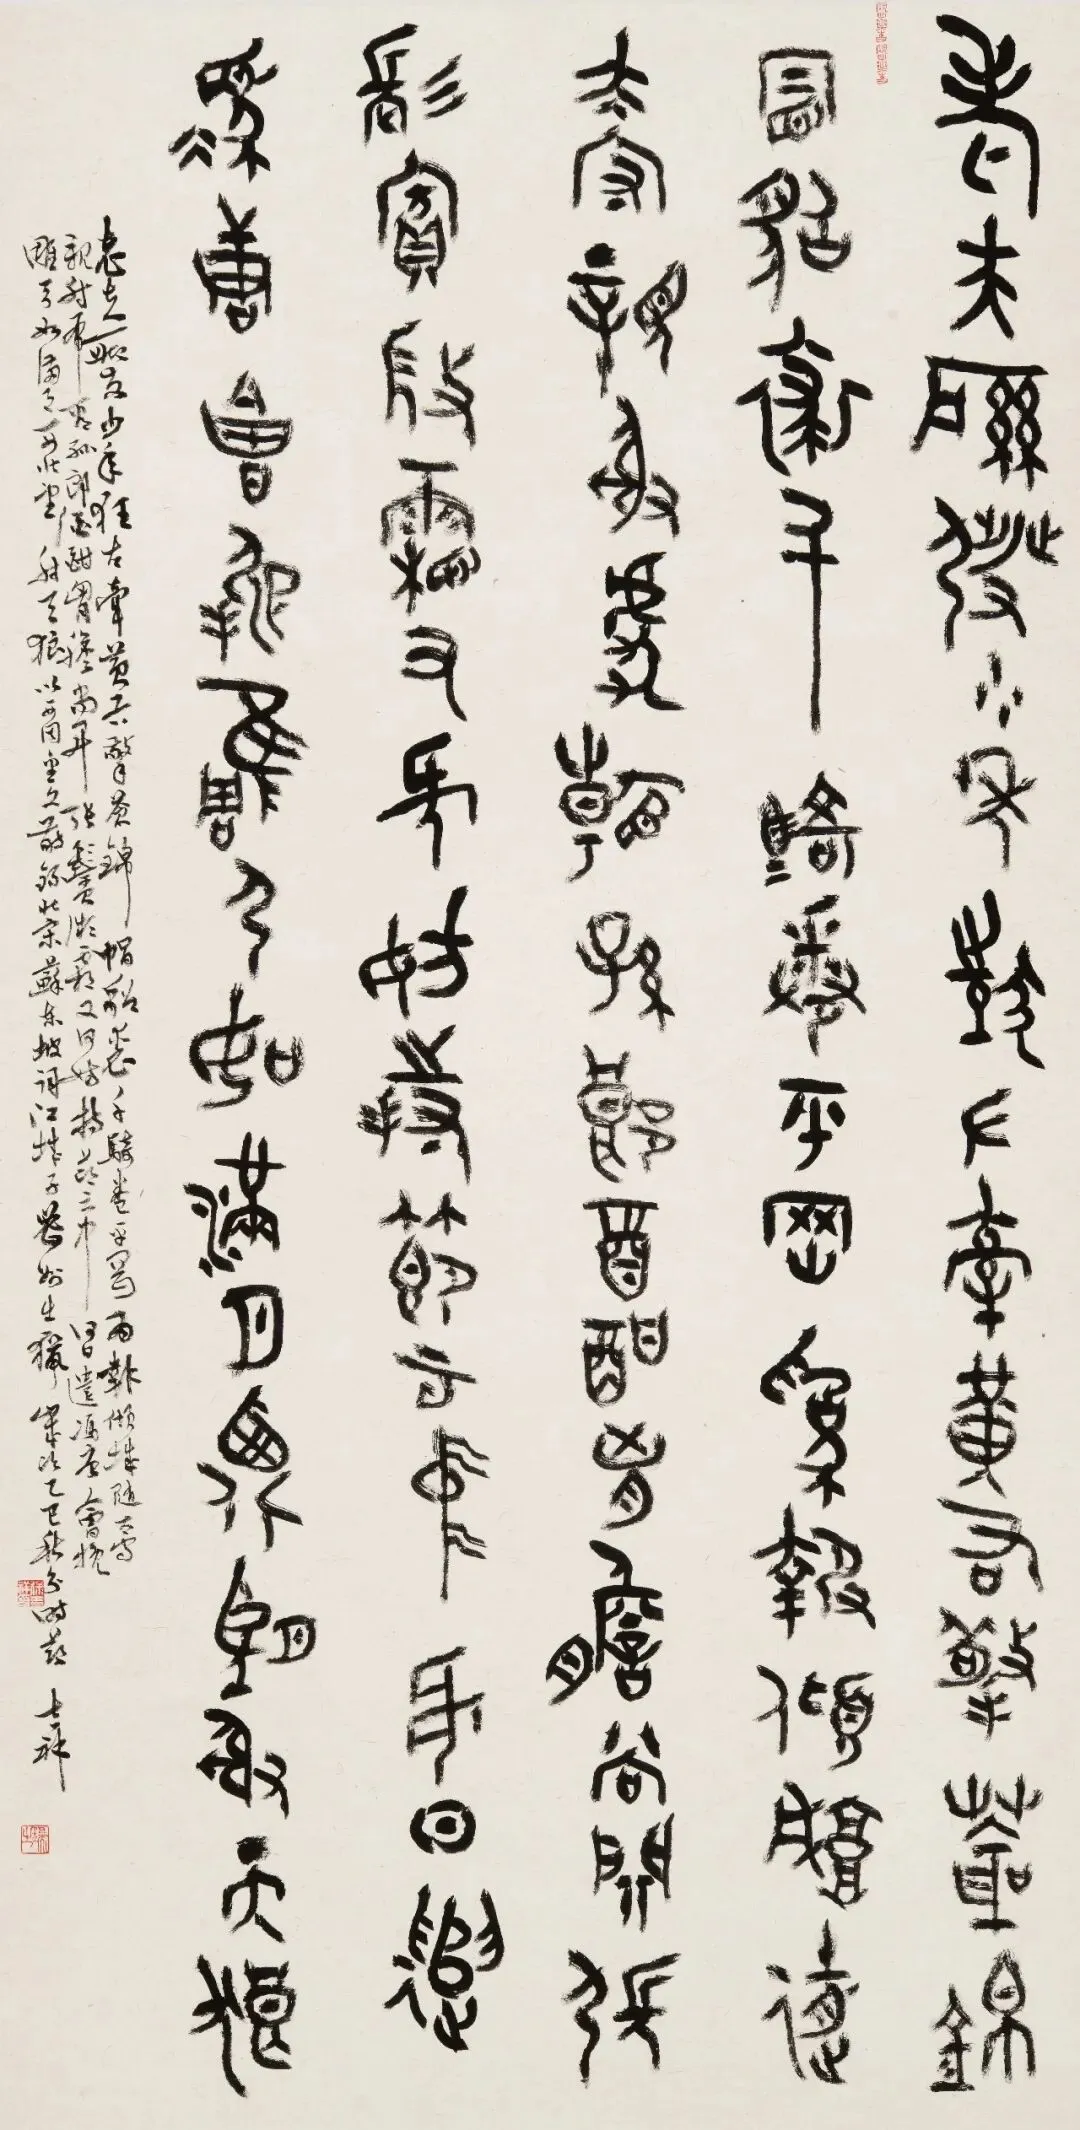 老夫聊發少年狂左牽黃右擎蒼錦
帽貂裘千騎卷平岡為報傾城隨
太守親射虎看孫郎酒酣胸膽尚開張
鬢微霜又何妨持節雲中何日遣
馮唐會挽雕弓如滿月西北望射天狼
老夫聊發少年狂左牽黃右擎蒼錦帽貂裘千騎卷平岡為報傾城隨太守
親射虎看孫郎酒酣胸膽尚開張鬢微霜又何妨持節雲中何日遣馮唐會挽
雕弓如滿月西北望射天狼以西周金文書錄北宋蘇東坡詞江城子密州出獵歲次乙巳秋分時節士祥